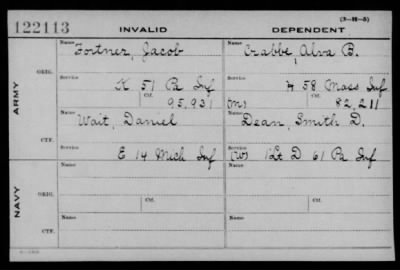 (3—H—5)
122113 INVALID DEPENDENT
Name Name
Fortner, Jacob Crabbe, Alva B.
ARMY
ORIG.
Service Service
K 51 Pa Inf H 58 Mass Inf
Ctf. Ctf.
95,931 (M) 82,211
Name Name
Wait, Daniel Dean, Smith D.
CTF.
Service Service
E 14 Mich Inf (W) 1Lt D 61 Pa Inf
NAVY
Name Name
ORIG.
Ctf. Ctf.
Name Name
CTF.